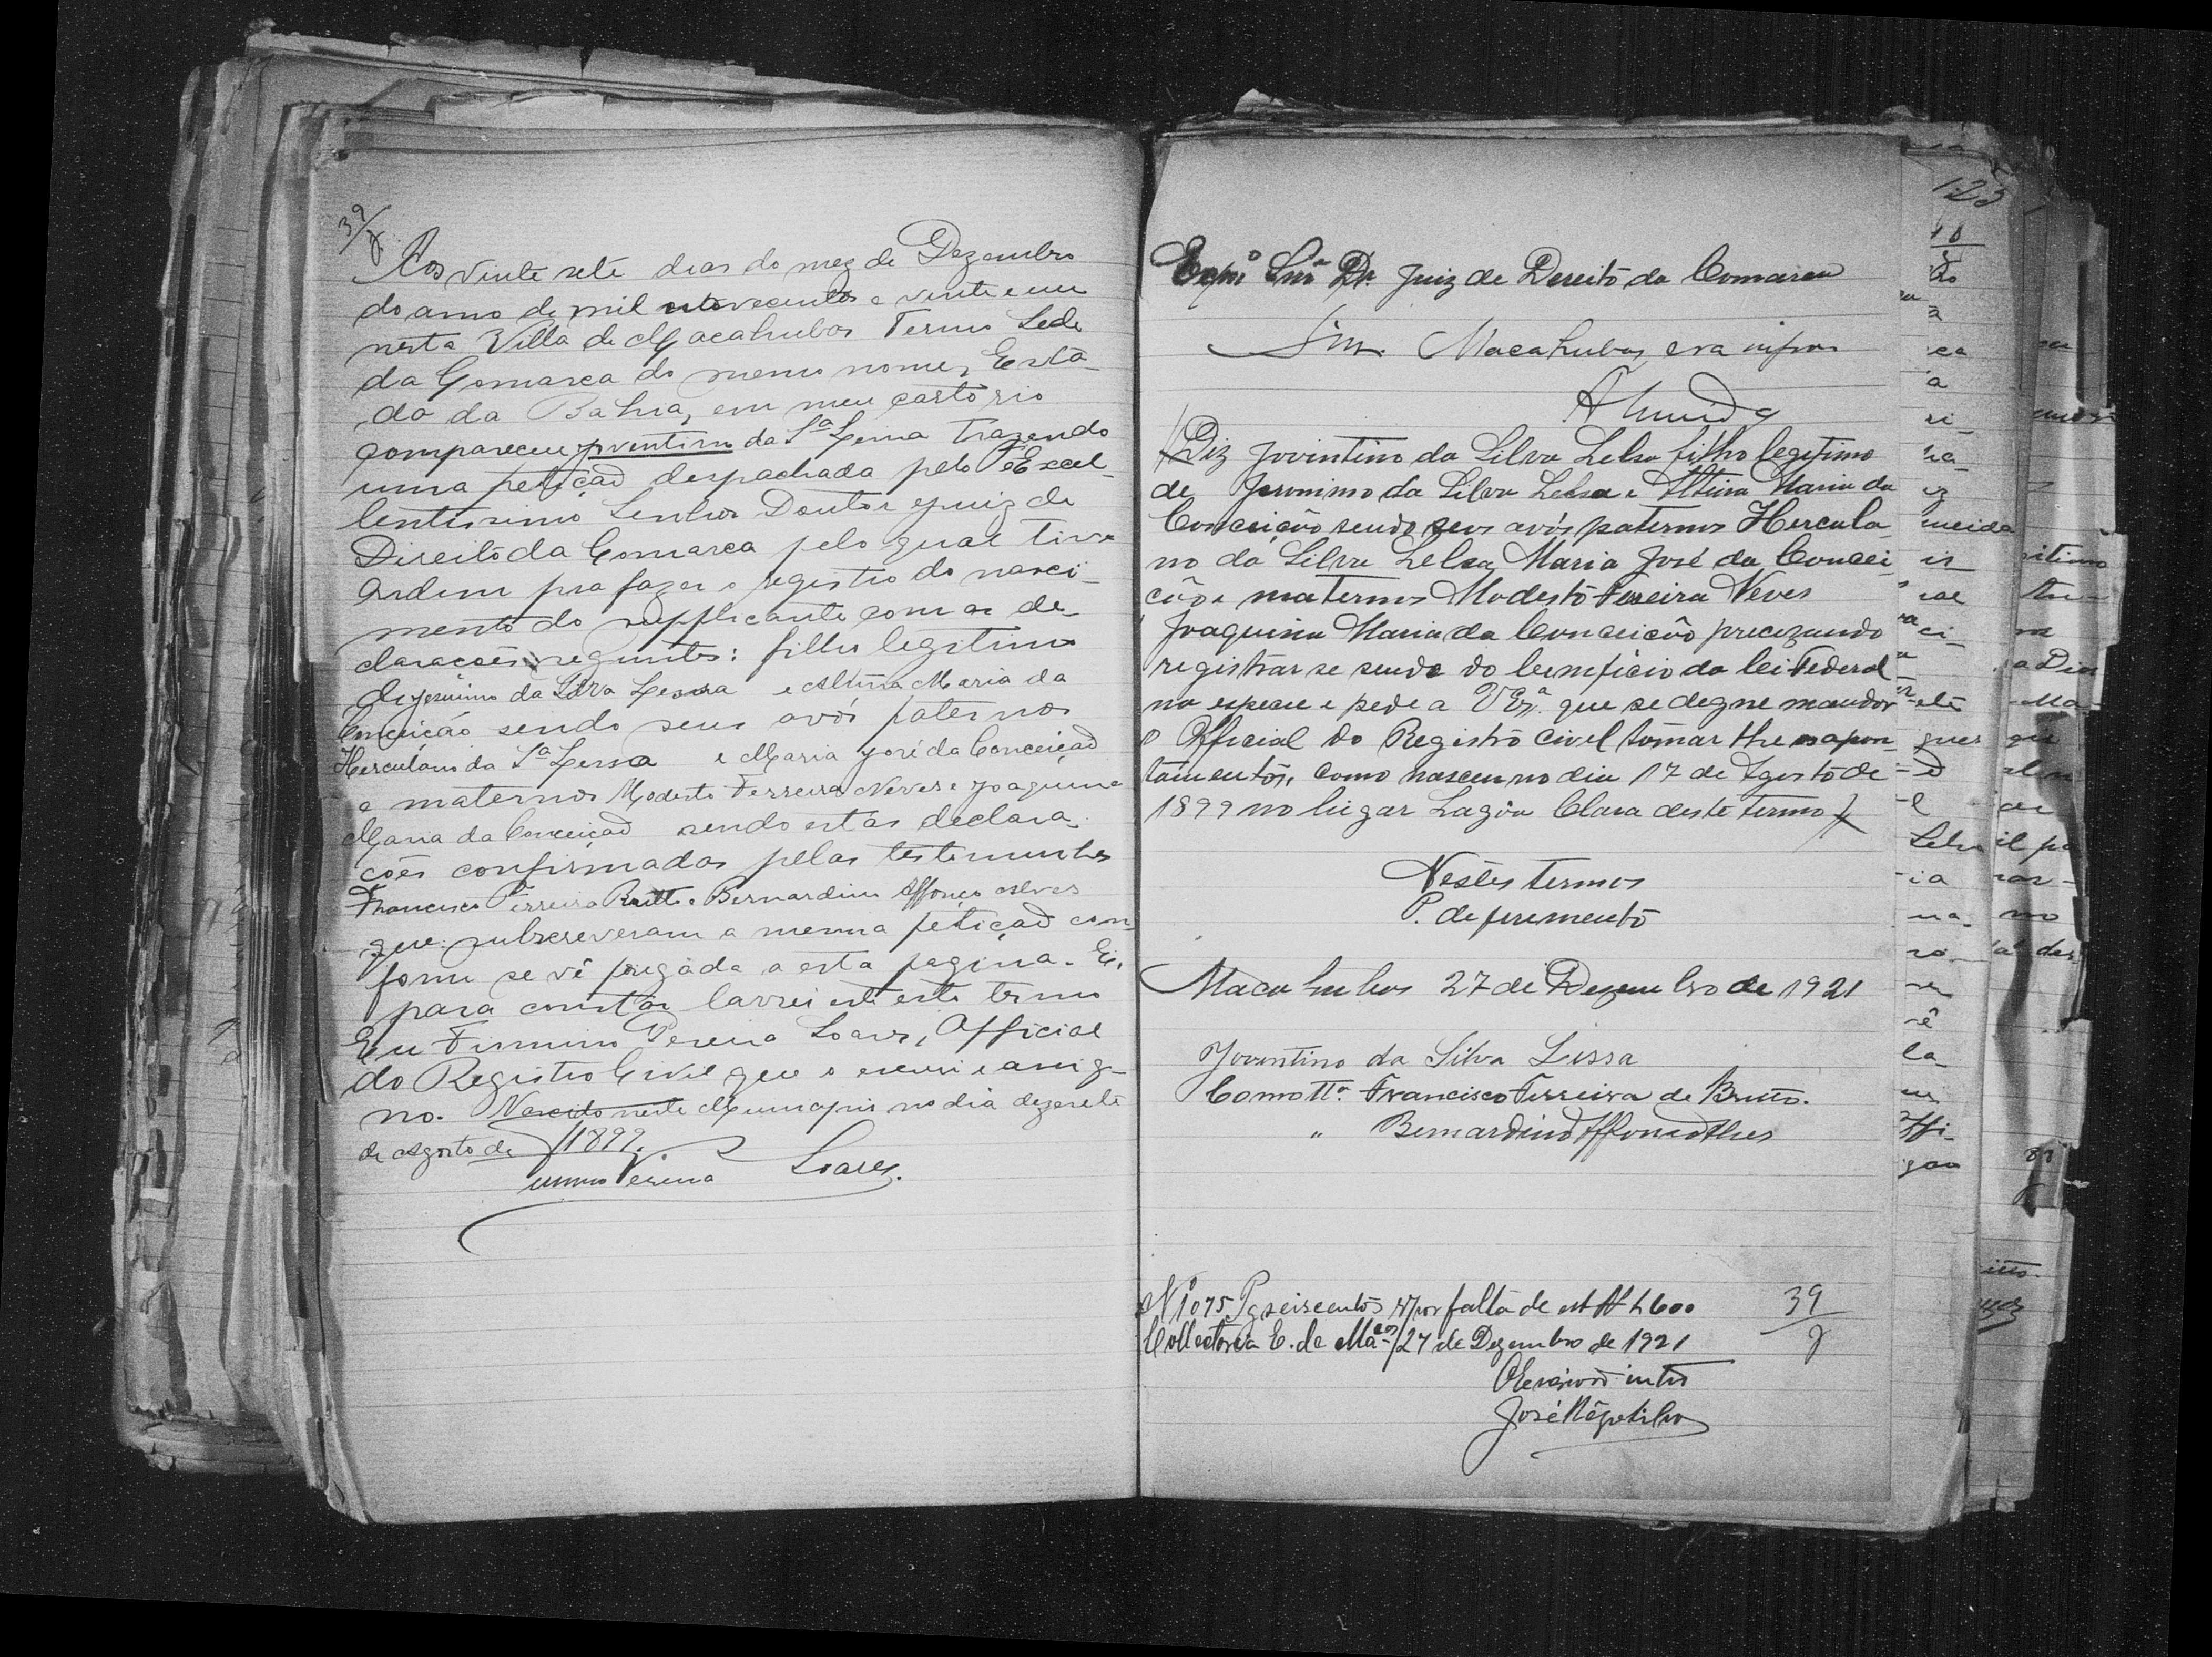 39
Aos vinte sete dias do mez de Dezembro
do anno de mil novecentos e vinte e um
nesta Villa de Macahubas Termo Sede
da Comarca do mesmo nome, Esta-
do da Bahia, em meu cartorio
compareceu Joventino da Sª Lessa trazendo
uma petição despachada pelo Excel-
lentissimo Senhor Doutor Juiz de
Direito da Comarca pelo qual tive
ordem pra fazer o registro do nasci-
mento do supplicante com as de-
claracões seguintes: filho legitimo
de Jeronimo da Silva Lessa e Altina Maria da
Conceição sendo seus avós paternos
Herculano da Sª Lessa e Maria José da Conceição
e maternos Modesto Ferreira Neves e Joaquina
Maria da Conceição sendo estas declara-
cões confirmadas pelas testemunhas
Francisco Ferreira Britto e Bernardino Affonço Alves
que subscreveram a mesma petição con-
forme se vê pregada a esta pagina. E,
para constar lavrei este termo
Eu Firmino Pereira Soares, Official
do Registro Civil que o escrevi e assig-
no. Nascido neste Municipio no dia dezesete
de Agosto de 1899.
Firmino Pereira Soares.
Exmº Snr Dr. Juiz de Dereito da Comarca
Sim. Macahubas, era infra
Almeida
Diz Joventino da Silva Lelsa filho legitimo
de Jeronimo da Silva Lelsa e Altina Maria da
Conceição sendo seus avós paternos Hercula-
no da Silva Lelsa, Maria José da Concei-
ção e maternos Modesto Fereira Neves
Joaquina Maria da Conceicão precizando
registrar se sendo do beneficio da lei Federal
no espece e pede a V Exª. que se degne mandar
o Official do Registro civel tomar lhe os apon-
tamentos, como nasceu no dia 17 de Agosto de
1899 no lugar Lagôa Clara deste termo
Nestes termos
P. deferemento
Macahubas 27 de Dezembro de 1921
Joventino da Silva Lissa
Como ttª. Francisco Ferreira de Britto.
" Bernardino Affonco Alves
Nº 1075 Pg seiscentos rs por falta de est
Collectoria E. de Macos 27 de Dezembro de 1921
39
Escrivão intº
José
123